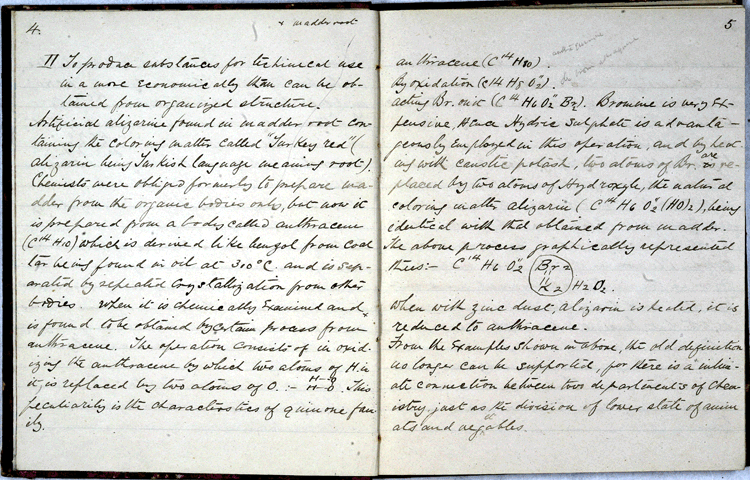 4.
x madder root
II To produce substances for technical use
in a more economically than can be ob-
tained from organized structure.
Artificial alizarine found in madder root con-
taining the coloring matter called "Turkey red" (
alizarin being Turkish language meaning root).
Chemists were obliged formerly to prepare ma-
dder from the organic bodies only, but now it
is prepared from a body called anthracene
(C14H10) which is derived like benzol from coal
tar being found in oil at 300°C. and is sep-
arated by repeated crystallization from other
bodies. When it is chemically examined and x
is found to be obtained by certain process from
anthracene. The operation consists of in oxid-
izing the anthracene by which two atoms of H. in
it, is replaced by two atoms of O. :- H-O H-O. This
peculiarity is the characteristics of quinone fam-
ily.
5
anthracene (C14H10).
By oxidation (C14H8O2").
acting Br. on it (C14H6O2"Br2). Bromine is very ex-
pensive, hence Hydric Sulphate is advanta-
geously employed in this operation, and by heat-
ing with caustic potash, two atoms of Br. are re-
placed by two atoms of Hydroxyle, the natural
coloring matter alizarin (C14H6O2"(HO)2), being
identical with that obtained from madder.
The above process graphically represented
thus:- C14H6O2 Br2
K2 H2O2.
When with zinc dust, alizarin is heated, it is
reduced to anthracene.
From the examples shown in above, the old definition
no longer can be supported, for there is a intim-
ate connection between two departments of Chem-
istry, just as the division of lower state of anim-
als and vegetables.